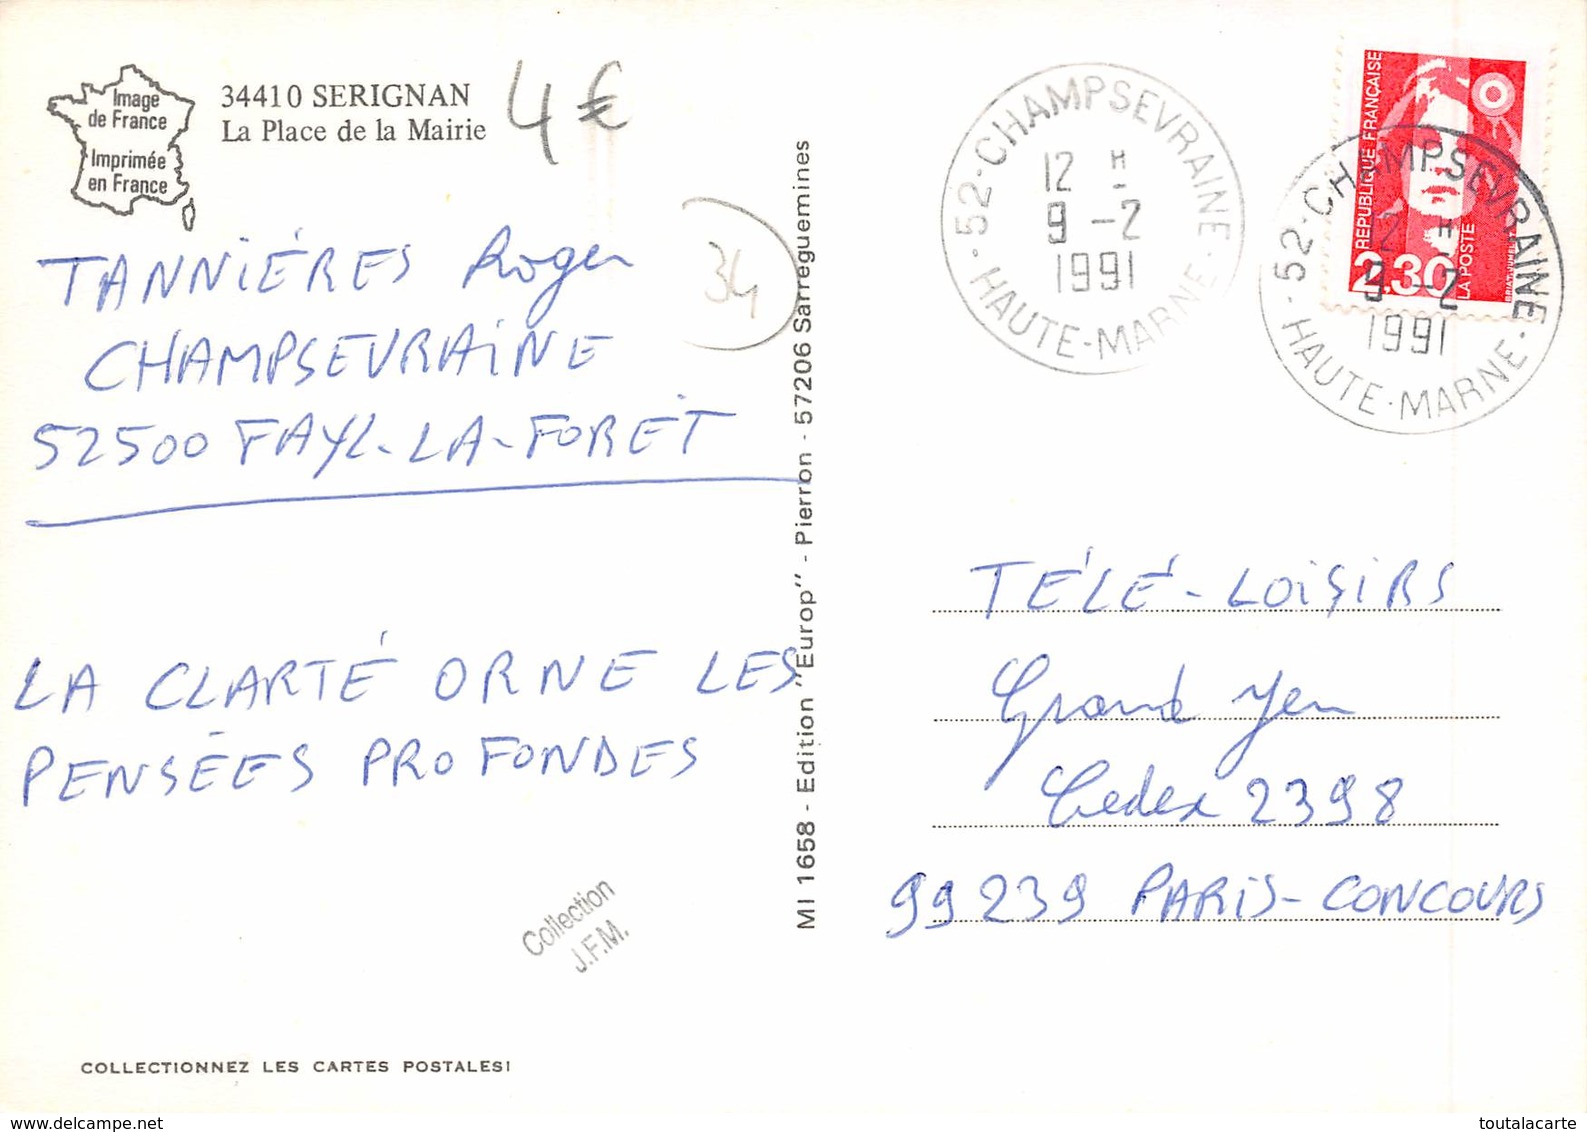 Image
de France
Imprimée
en France
34410 SERIGNAN
La Place de la Mairie
4€
34
TANNIÉRES Roger
CHAMPSEVRAINE
52500 FAYL-LA-FORET
LA CLARTÉ ORNE LES
PENSÉES PROFONDES
Collection
J.F.M.
COLLECTIONNEZ LES CARTES POSTALES!
MI 1658 - Edition "Europ" - Pierron - 57206 Sarreguemines
52-CHAMPSEVRAINE
12 H
9 -2
1991
HAUTE-MARNE
REPUBLIQUE FRANÇAISE
2,30
LA POSTE
52-CHAMPSEVRAINE
12 H
9 -2
1991
HAUTE-MARNE
TÉLÉ-LOISIRS
Grand Jeu
Cedex 2398
99239 PARIS-CONCOURS
delcampe.net
toutalacarte